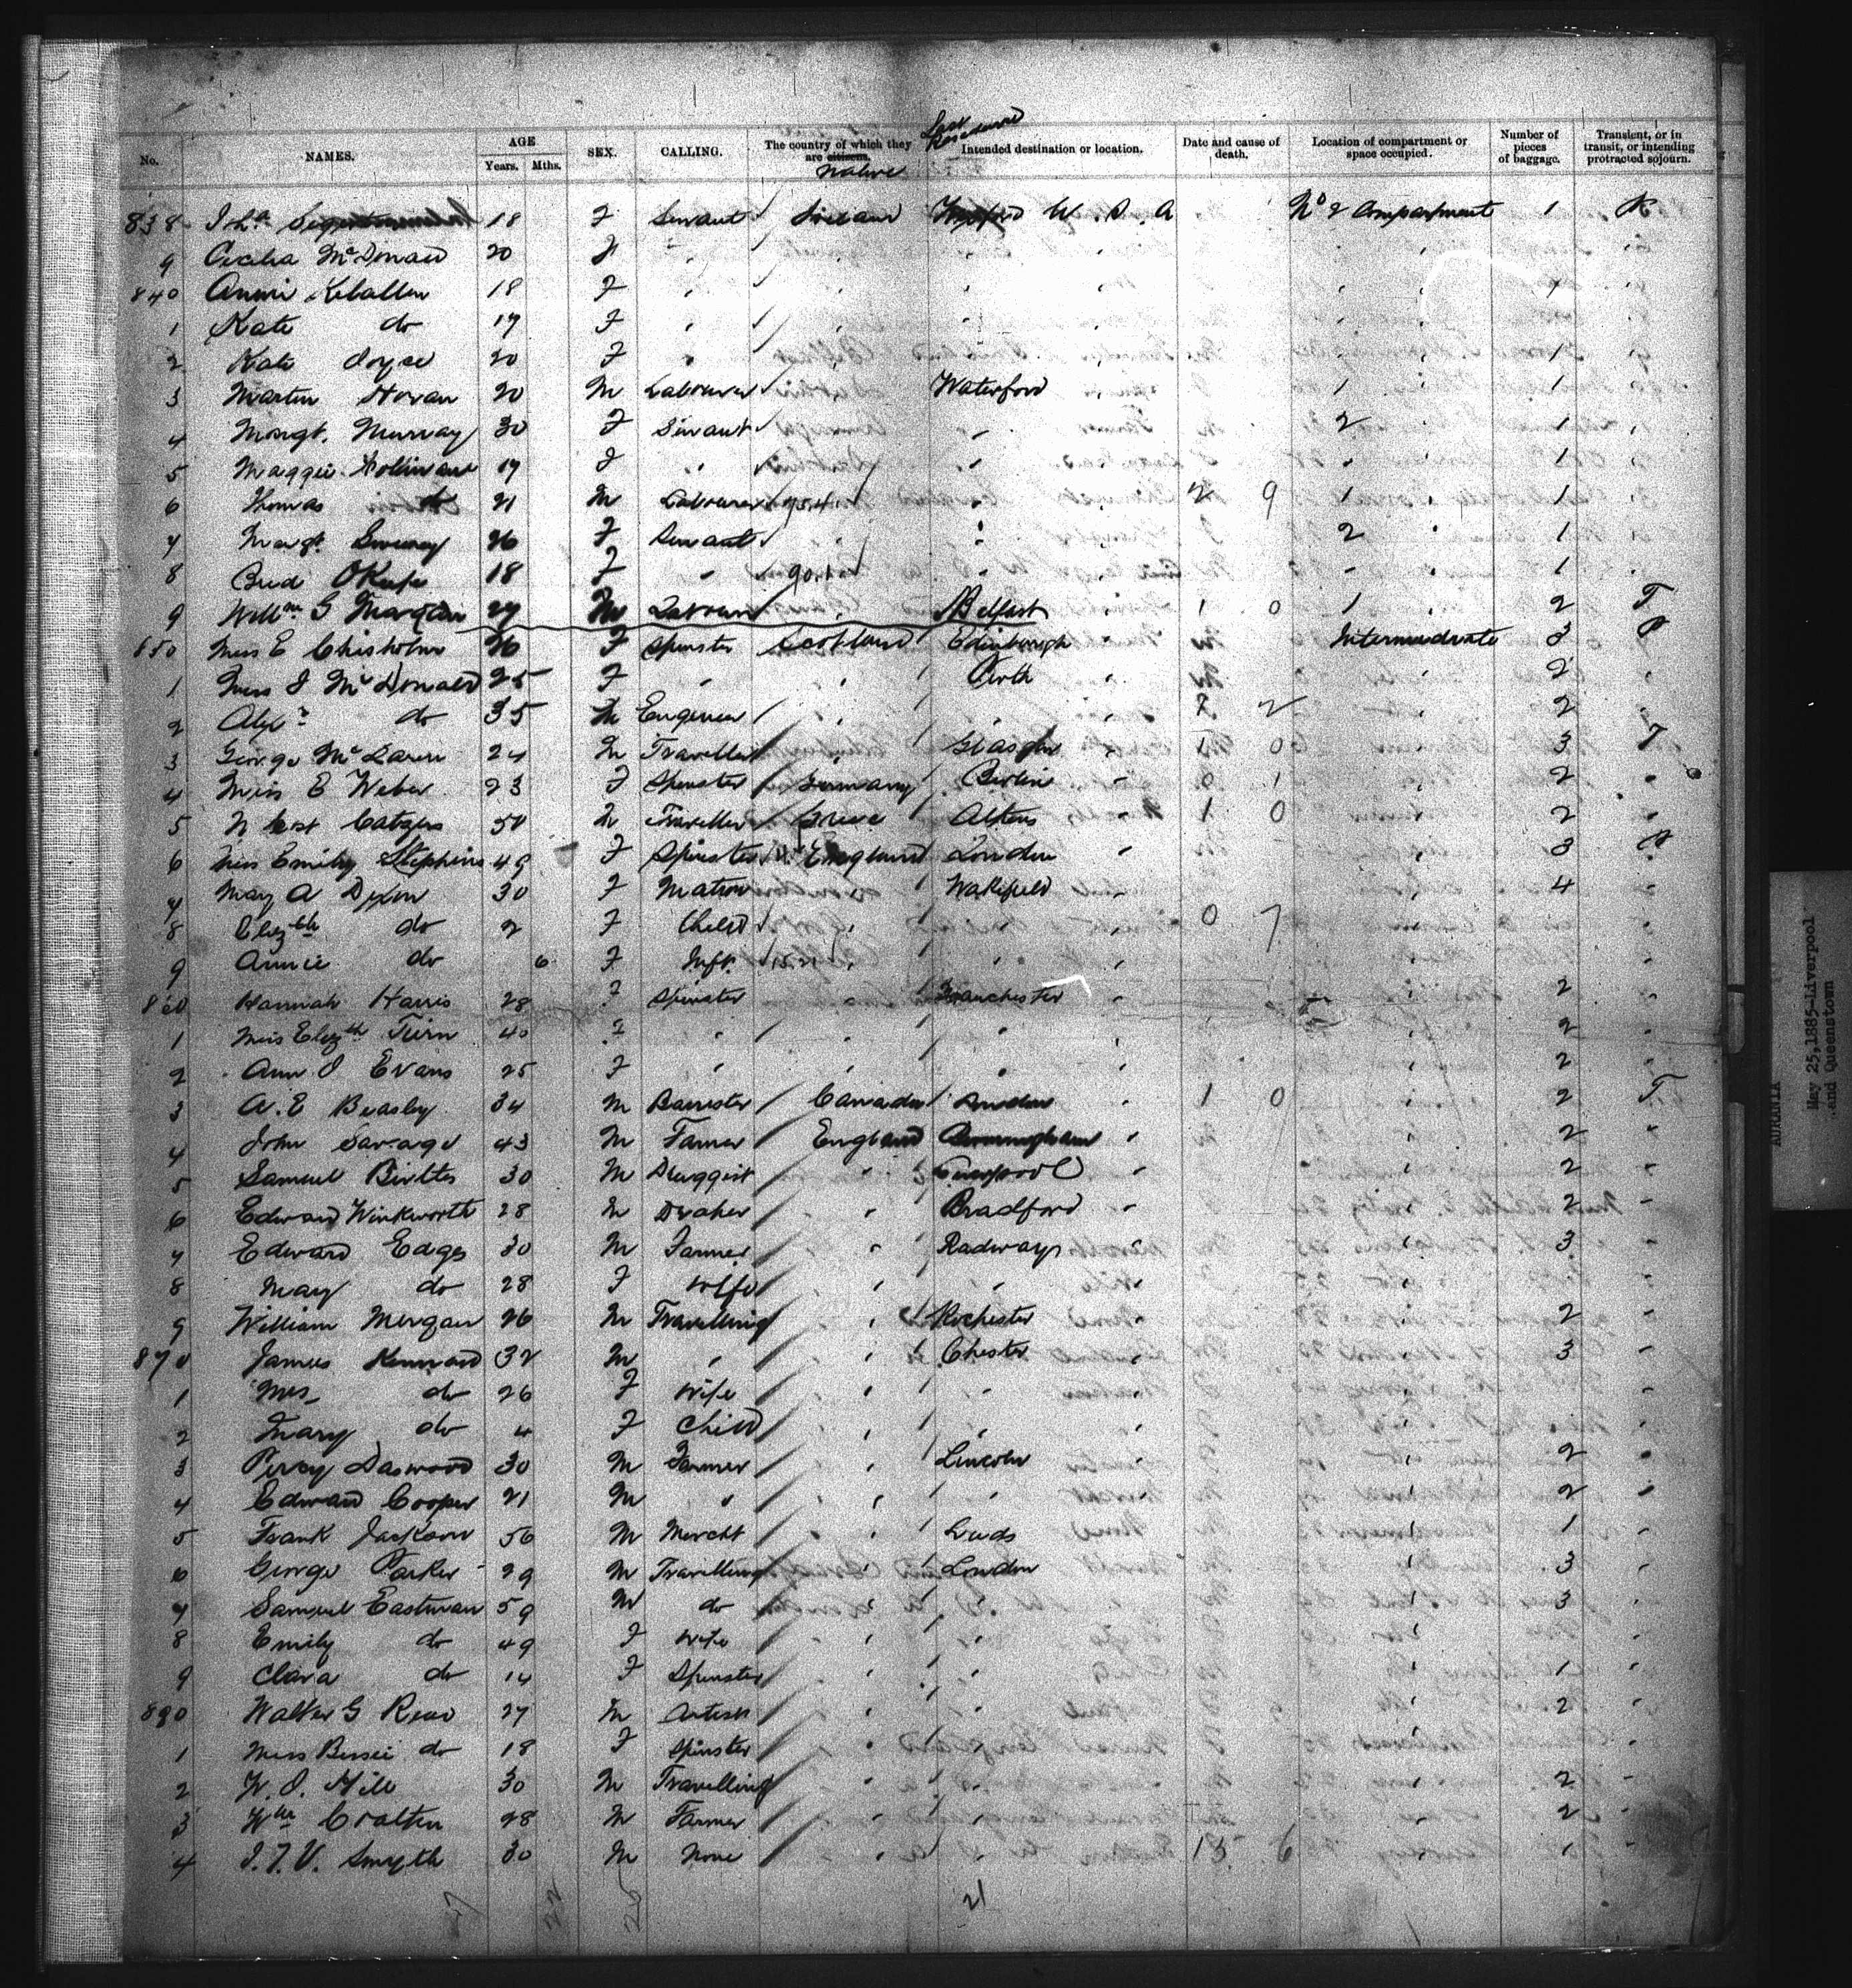 Last Residence
No. NAMES. AGE Years. Mths. SEX. CALLING. The country of which they are citizens. Native Intended destination or location. Date and cause of death. Location of compartment or space occupied. Number of pieces of baggage. Transient, or in transit, or intending protracted sojourn.
838 18 F Servant Ireland U.S.A No 2 Compartment 1
9 Cecilia McDonald 20 "
840 Annie 18 F " 1
1 Kate do 17 F "
2 Kate Joyce 20 F " 1
3 Martin Horan 20 M Labourer Waterford 1 1
4 Margt. Murray 30 F Servant " 2 1
5 Maggie 17 F " " 1
6 Thomas do 21 M Labourer 95.4 " 2 9 1 1
7 Margt. Sweeney 26 F Servant " 2 1
8 Brid OKeefe 18 F " 90.1 " " 1
9 Willm G Morgan 27 M Labourer Belfast 1 0 1 2 T
850 Miss E Chisholm 26 F Spinster Scotland Edinburgh Intermediate 3 P
1 Miss J McDonald 25 F " " Perth 2 "
2 Alexr do 35 M Engineer " " 2 2 "
3 George McLaren 24 M Traveller " Glasgow 1 0 3 T
4 Miss E Weber 23 F Spinster Germany Berlin 0 1 2 "
5 50 M Traveller Greece Athens 1 0 2 "
6 Miss Emily Stephens 49 F Spinster England London " 3 P
7 May A Dixon 30 F Matron " Wakefield 4 "
8 Elizbth do 2 F Child " " 0 7 "
9 Annie do 6 F Inft. 15.21 " " "
860 Hannah Harris 28 F Spinster " Manchester 2 "
1 Miss Elizth Turn 40 F " " " 2 "
2 Ann J Evans 25 F " " " 2 "
3 A. E Beasley 34 M Barrister Canada London " 1 0 2 T
4 John Savage 43 M Farmer England Birmingham " 2 "
5 Samuel Birtles 30 M Druggist " Liverpool " 2 "
6 Edward Winkworth 28 M Draper " Bradford " 2 "
7 Edward Edges 30 M Farmer " Radways " 3 "
8 Mary do 28 F Wife " " "
9 William Morgan 26 M Travelling " Rochester 2 "
870 James Kennard 32 M " " Chester 3 "
1 Mrs do 26 F Wife " " "
2 Mary do 4 F Child " " "
3 Percy Daswood 30 M Farmer " Lincoln 2 "
4 Edward Cooper 21 M " " " 2 "
5 Frank Jackson 56 M Mercht " Leeds 1 "
6 George Parker 29 M Travelling " London 3 "
7 Samuel Eastman 59 M do " " 3 "
8 Emily do 49 F Wife " " "
9 Clara do 14 F Spinster " " 1 "
880 Walter G Read 27 M Artist " " 2 "
1 Miss Bessie do 18 F Spinster " "
2 W. J. Hill 30 M Travelling " " 2 "
3 Wm Cralten 28 M Farmer " " 2 "
4 J. T. V. Smyth 30 M None " " 13 6 1 "
21
AURANIA
May 25, 1885-Liverpool
and Queenstown